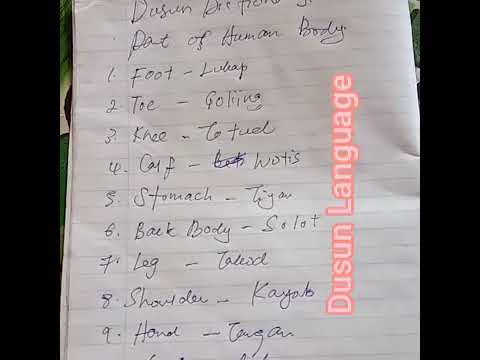 Dusun Dictionary
Part of Human Body
1. Foot - Lukap
2. Toe - Goliing
3. Knee - Totud
4. Calf - Wotis
5. Stomach - Tiyan
6. Back Body - Solot
7. Leg - Takod
8. Shoulder - Kayab
9. Hand - Tangan
Dusun Language